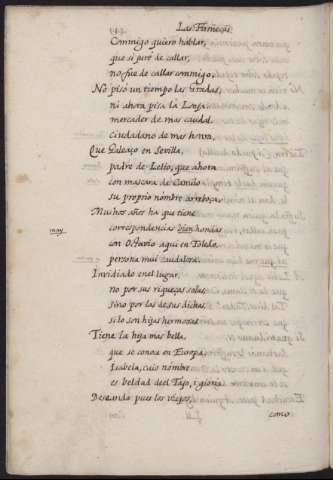 Las Firmeças.
Commigo quiero hablar,
que si pude callar,
no fue de callar commigo.
No pisò un tiempo las Gradas,
ni ahora pisa la Lonja
mercader de mas caudal,
ciudadano de mas honra,
Que Galeazo en Sevilla,
padre de Lelio, que ahora
con mascara de Camilo
su proprio nombre arreboça.
Muchos años ha que tiene
correspondencias bien hondas
muy
con Octavio aqui en Toledo,
persona mui caudalosa:
Invidiado en el lugar,
no por sus riqueças solas,
sino por las de sus dichas,
si lo son hijas hermosas.
Tiene la hija mas bella,
que se conoce en Europa,
Isabela, cuio nombre
es beldad del Tajo, i gloria.
Deseando pues los viejos,
como